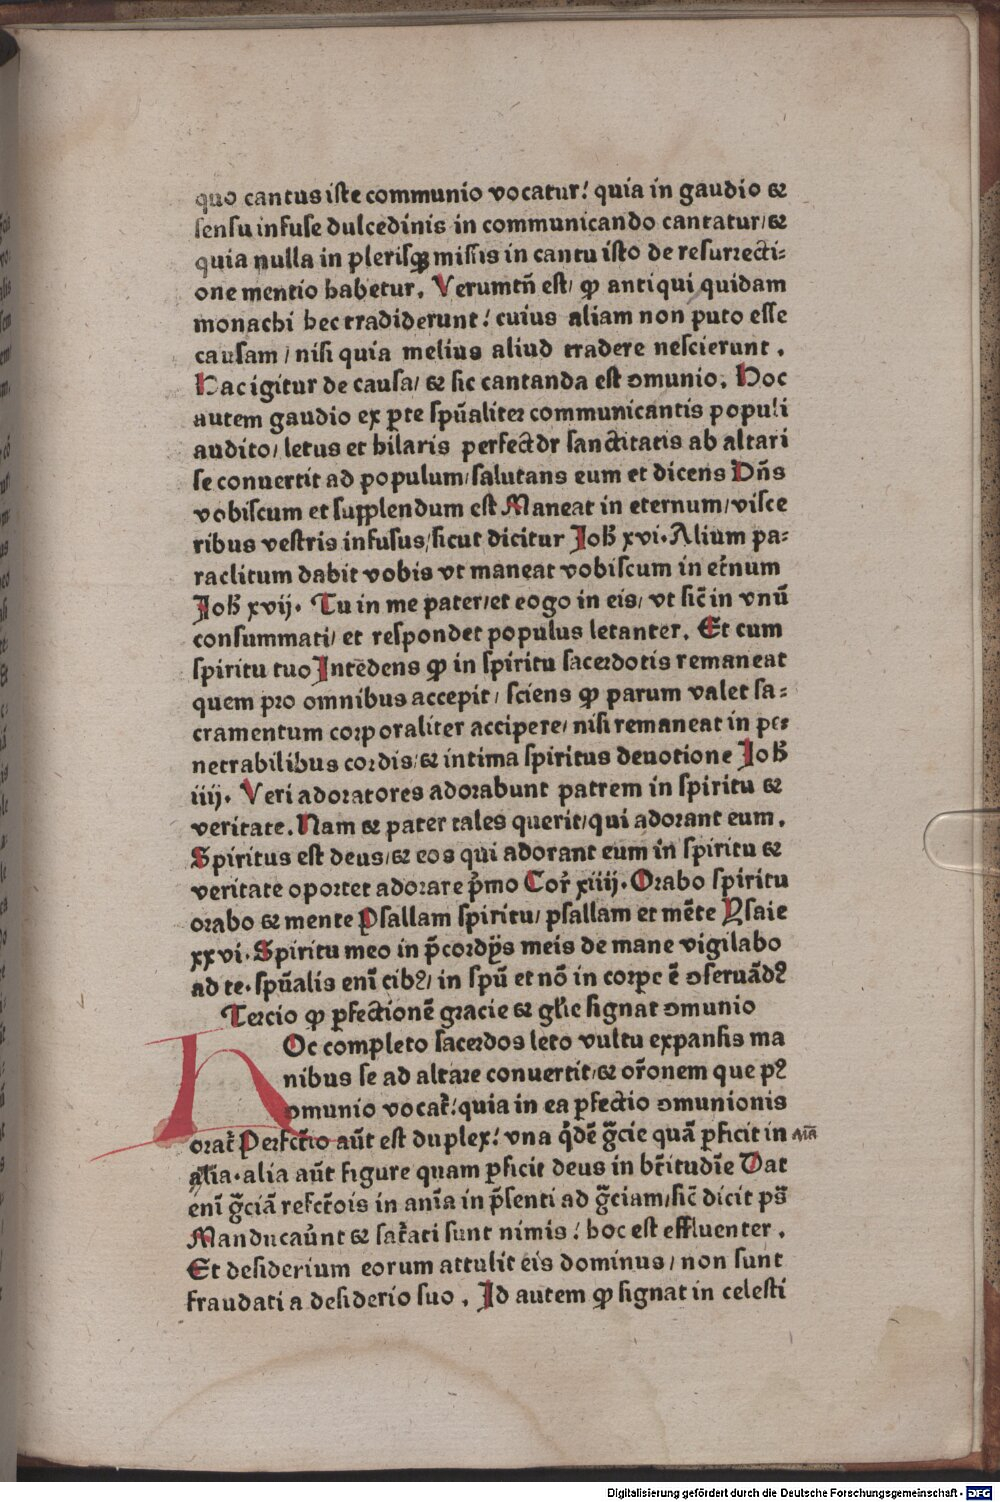 quo cantus iste communio vocatur! quia in gaudio ⁊
sensu infuse dulcedinis in communicando cantatur/⁊
quia nulla in plerisqꝫ missis in cantu isto de resurrecti⸗
one mentio habetur. Verumtñ est/ ꝙ antiqui quidam
monachi hec tradiderunt! cuius aliam non puto esse
causam/ nisi quia melius aliud tradere nescierunt.
Hac igitur de causa/ ⁊ sic cantanda est ꝯmunio. Hoc
autem gaudio ex ꝑte spũaliter communicantis populi
audito/ letus et hilaris perfectõr sanctitatis ab altari
se conuertit ad populum/salutans eum et dicens Dñs
vobiscum et supplendum est Maneat in eternum/visce
ribus vestris infusus/sicut dicitur Joh̃ xvi. Alium pa⸗
raclitum dabit vobis vt maneat vobiscum in et̃num
Joh̃ xvij. Tu in me pater/et eogo in eis/ vt sic̃ in vnũ
consummati/ et respondet populus letanter. Et cum
spiritu tuo Intẽdens ꝙ in spiritu sacerdotis remaneat
quem pro omnibus accepit/ sciens ꝙ parum valet sa⸗
cramentum corporaliter accipere/ nisi remaneat in pe⸗
netrabilibus cordis/⁊ intima spiritus deuotione Joh̃
iiij. Veri adoratores adorabunt patrem in spiritu ⁊
veritate. Nam ⁊ pater tales querit/qui adorant eum.
Spiritus est deus/⁊ eos qui adorant eum in spiritu ⁊
veritate oportet adorare p̃mo Cor̃ xiiij. Orabo spiritu
orabo ⁊ mente Psallam spiritu/ psallam et mẽte Ysaie
xxvi. Spiritu meo in p̃cordijs meis de mane vigilabo
ad te. spũalis eni᷑ cibꝰ/ in spũ et nõ in corpe ẽ ꝯseruãdꝰ
Tercio ꝙ ꝑfectionẽ gracie ⁊ gl̃ie signat ꝯmunio
HOc completo sacerdos leto vultu expansis ma
nibus se ad altare conuertit/⁊ or̃onem que pꝰ
ꝯmunio vocat̃! quia in ea ꝑfectio ꝯmunionis
orat̃ Perfct̃io aũt est duplex! vna q̃dẽ g̃cie quã ꝑficit in aĩa
al̃ia. alia aũt figure quam ꝑficit deus in bt̃itudĩe Dat
enĩ g̃ciã refct̃ois in anĩa in p̃senti ad g̃ciam/sic̃ dicit ps̃
Manducaũnt ⁊ sat̃ati sunt nimis! hoc est effluenter.
Et desiderium eorum attulit eis dominus/ non sunt
fraudati a desiderio suo. Id autem ꝙ signat in celesti
Digitalisierung gefördert durch die Deutsche Forschungsgemeinschaft - DFG